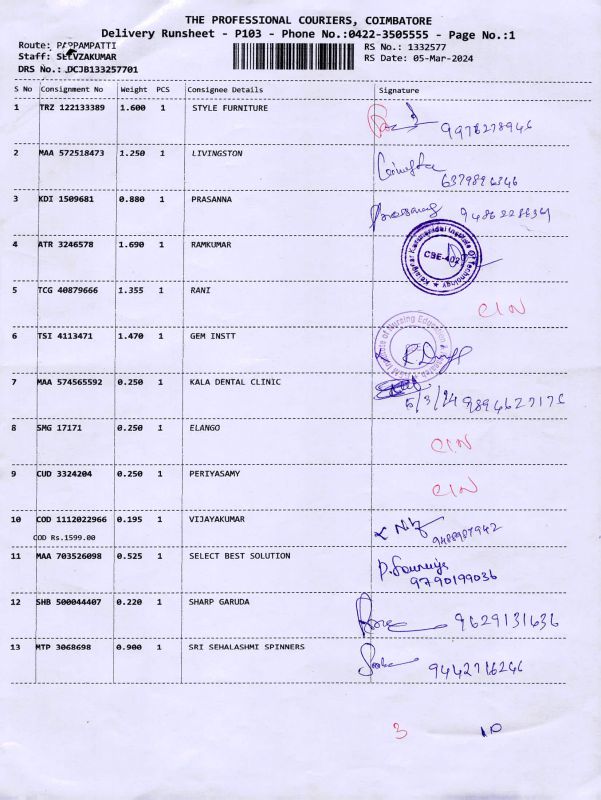 THE PROFESSIONAL COURIERS, COIMBATORE
Delivery Runsheet - P103 - Phone No.:0422-3505555 - Page No.:1
Route: PAPPAMPATTI
RS No.: 1332577
Staff: SELVZAKUMAR
RS Date: 05-Mar-2024
DRS No.: DCJB133257701
S No Consignment No Weight PCS Consignee Details Signature
1 TRZ 122133389 1.600 1 STYLE FURNITURE
9978278946
2 MAA 572518473 1.250 1 LIVINGSTON
6379896346
3 KDI 1509681 0.880 1 PRASANNA
4 ATR 3246578 1.690 1 RAMKUMAR
Institute Of Technology
CBE-402
5 TCG 40879666 1.355 1 RANI
CIN
6 TSI 4113471 1.470 1 GEM INSTT
Institute of Nursing Education
7 MAA 574565592 0.250 1 KALA DENTAL CLINIC
5/3/24
8 SMG 17171 0.250 1 ELANGO
CIN
9 CUD 3324204 0.250 1 PERIYASAMY
CIN
10 COD 1112022966 0.195 1 VIJAYAKUMAR
9488987942
COD Rs.1599.00
11 MAA 703526098 0.525 1 SELECT BEST SOLUTION
9790199036
12 SHB 500044407 0.220 1 SHARP GARUDA
9629131636
13 MTP 3068698 0.900 1 SRI SEHALASHMI SPINNERS
9442716246
3 10